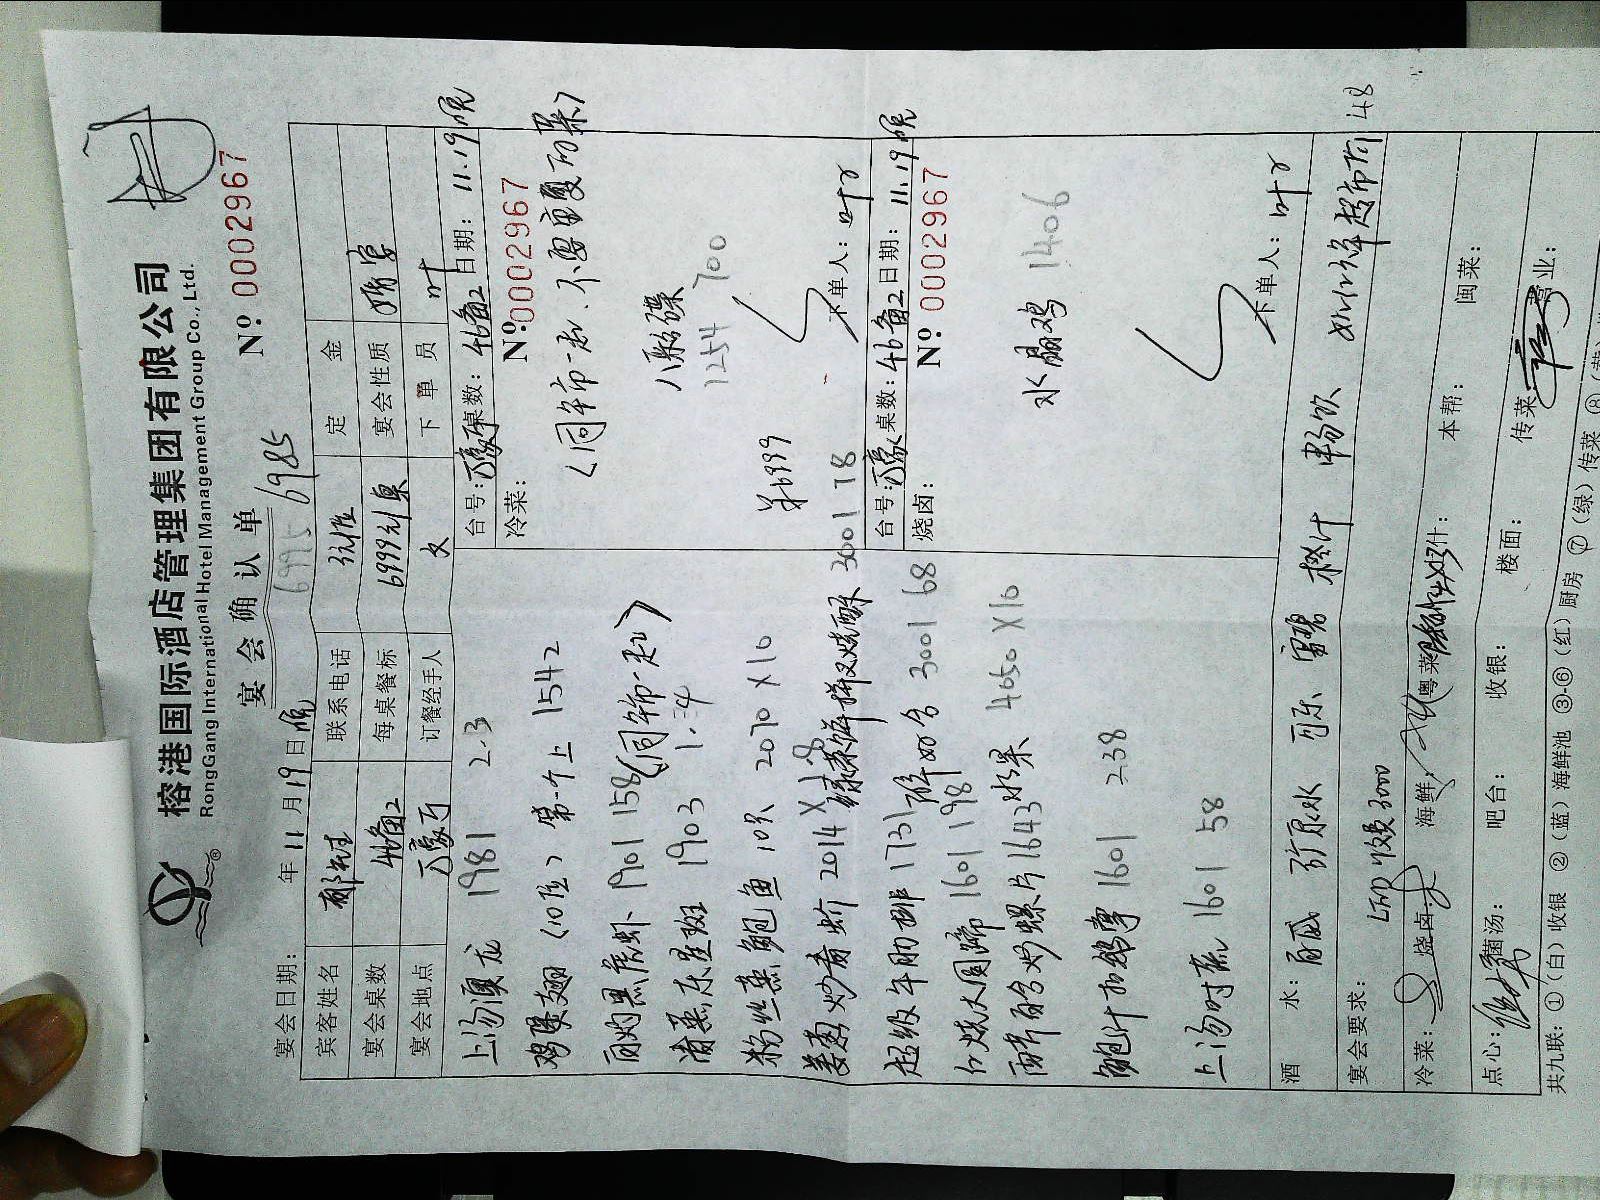 榕港国际酒店管理集团有限公司
RongGang International Hotel Management Group Co., Ltd.
宴会确认单
6995 6985
№ 0002967
宴会日期: 年 11 月 19 日 晚
宾客姓名 联系电话 定金
宴会桌数 46备2 每桌餐标 6999 宴会性质 婚宴
宴会地点 万豪厅 订餐经手人 下单员 叶
上汤澳龙 1981 2.3
鸡豚翅（10位）第一个上 1542
白灼黑虎虾 1901 158（同午市一起）
清蒸东星斑 1903 1.4
粉丝蒸鲍鱼 10只 2070 X10
姜葱炒青蚧 2014 X 8
绿茶饼拼叉烧酥 3001 78
超级牛肋排 1731
3001 68
红烧大圆蹄 1601 198
1643 水果 4050 X10
鲍汁扣鹅掌 1601 238
上汤时蔬 1601 58
台号: 万豪 桌数: 46备2 日期: 11.19晚
冷菜: № 0002967
（同午市一起、不要重复的菜）
八彩碟
1254 700
6999
下单人: 叶
台号: 万豪 桌数: 46备2 日期: 11.19晚
烧卤: № 0002967
水晶鸡 1406
下单人: 叶
酒水: 百威 矿泉水 可乐 雪碧 橙汁
48
宴会要求: 3000
冷菜: 烧卤: 海鲜: 粤菜: 什: 本帮: 闽菜:
点心: 菌汤: 吧台: 收银: 楼面: 传菜: 营业:
共九联: ①(白)收银 ②(蓝)海鲜池 ③-⑥(红)厨房 ⑦(绿)传菜 ⑧(黄)